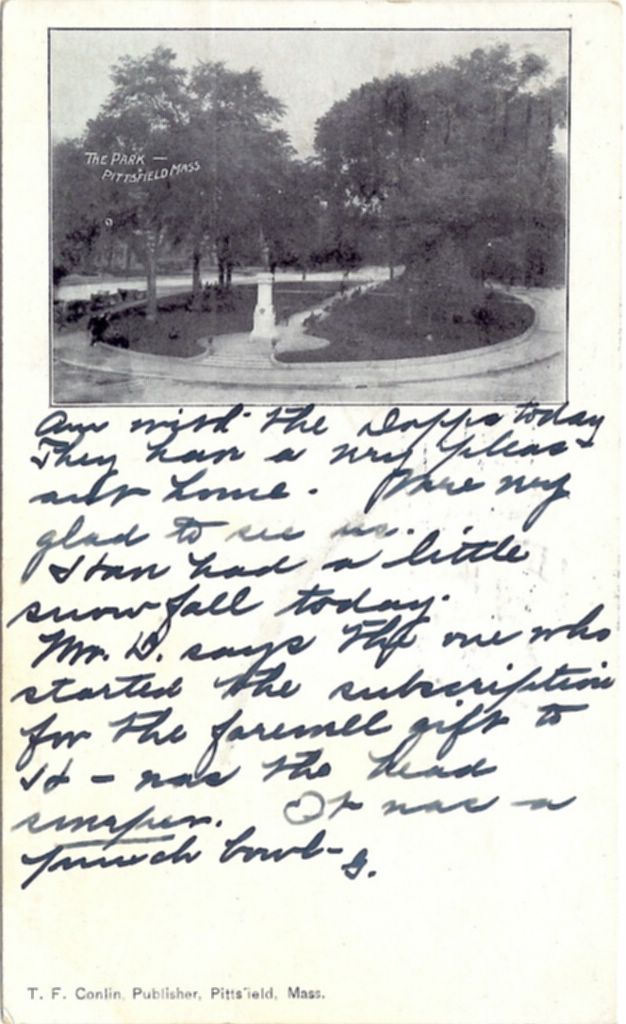 THE PARK —
PITTSFIELD MASS
Am with the Dopps today
They have a very pleas-
ant home. Were very
glad to see us.
have had a little
snow fall today.
Mr. D. says the one who
started the subscription
for the farewell gift to
was the head
It was a
punch bowl-
G.
T. F. Conlin, Publisher, Pittsfield, Mass.